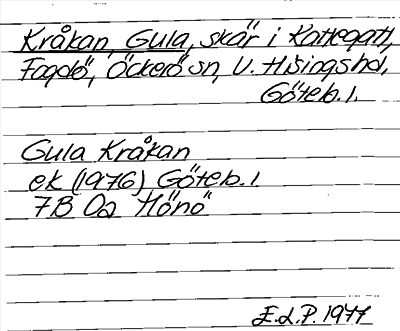 Kråkan, Gula, skär i Kattegatt,
Fogdö, Öckerö sn, V. Hisings hd,
Göteb. l.
Gula Kråkan
ek (1976) Göteb. l.
7B 0a Hönö
E.L.P. 1977